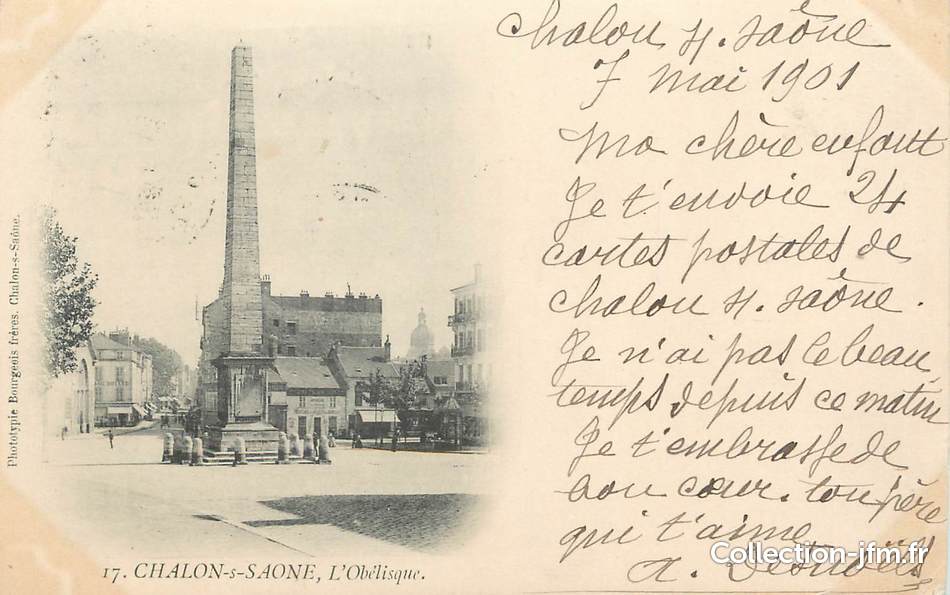 Chalon s. Saône
7 Mai 1901
Ma chère enfant
Je t'envoie 24
cartes postales de
Chalon s. Saône.
Je n'ai pas le beau
temps depuis ce matin
Je t'embrasse de
bon cœur. ton père
qui t'aime
A.
Collection-jfm.fr
Phototypie Bourgeois frères. Chalon-s-Saône.
17. CHALON-s-SAONE, L'Obélisque.